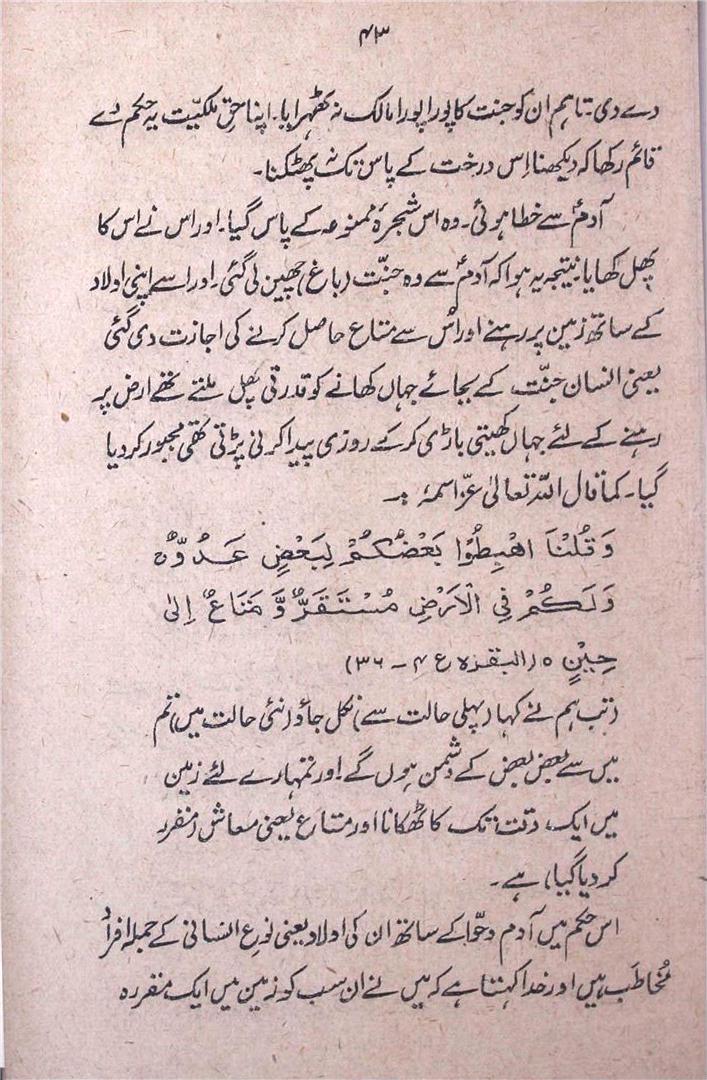 ۴۳
دے دی۔ تاہم ان کو جنت کا پورا پورا مالک نہ ٹھہرایا۔ اپنا حق ملکیّت یہ حکم دے
قائم رکھا کہ دیکھنا اِس درخت کے پاس تک نہ پھٹکنا۔
آدمؑ سے خطا ہوئی۔ وہ اس شجرۂ ممنوعہ کے پاس گیا۔ اور اس نے اس کا
پھل کھایا۔ نتیجہ یہ ہوا کہ آدمؑ سے وہ جنّت (باغ) چھین لی گئی۔ اور اسے اپنی اولاد
کے ساتھ زمین پر رہنے اور اُس سے متاع حاصل کرنے کی اجازت دی گئی
یعنی انسان جنّت کے بجائے جہاں کھانے کو قدرتی پھل ملتے تھے ارض پر
رہنے کے لئے جہاں کھیتی باڑی کرکے روزی پیدا کرنی پڑتی تھی مجبور کر دیا
گیا۔ کما قال اللہ تعالیٰ عزّ اسمہٗ :۔
وَقُلْنَا اهْبِطُوْا بَعْضُكُمْ لِبَعْضٍ عَدُوٌّ
وَلَكُمْ فِي الْاَرْضِ مُسْتَقَرٌّ وَّ مَتَاعٌ اِلٰى
حِيْنٍ ٥ (البقرہ ع ۴ - ۳۶)
(تب ہم نے کہا (پہلی حالت سے) نکل جاؤ (نئی حالت میں) تم
میں سے بعض بعض کے دشمن ہوں گے اور تمہارے لئے زمین
میں ایک وقت تک کا ٹھکانا اور متاع یعنی معاش (مقرر
کر دیا گیا) ہے۔
اس حکم میں آدم و حوّا کے ساتھ ان کی اولاد یعنی نوعِ انسانی کے جملہ افراد
مُخاطَب ہیں اور خدا کہتا ہے کہ میں نے ان سب کو زمین میں ایک مقررہ